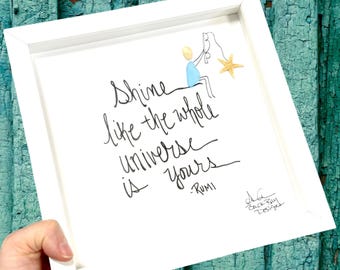 Shine
like the whole
universe
is yours
-RUMI